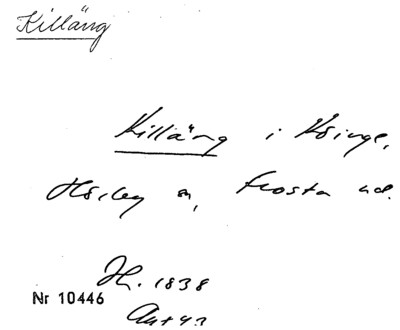 Killäng
Killäng i Köinge,
Hörby sn, Frosta hd.
Hh. 1838
Nr 10446
Ant 43